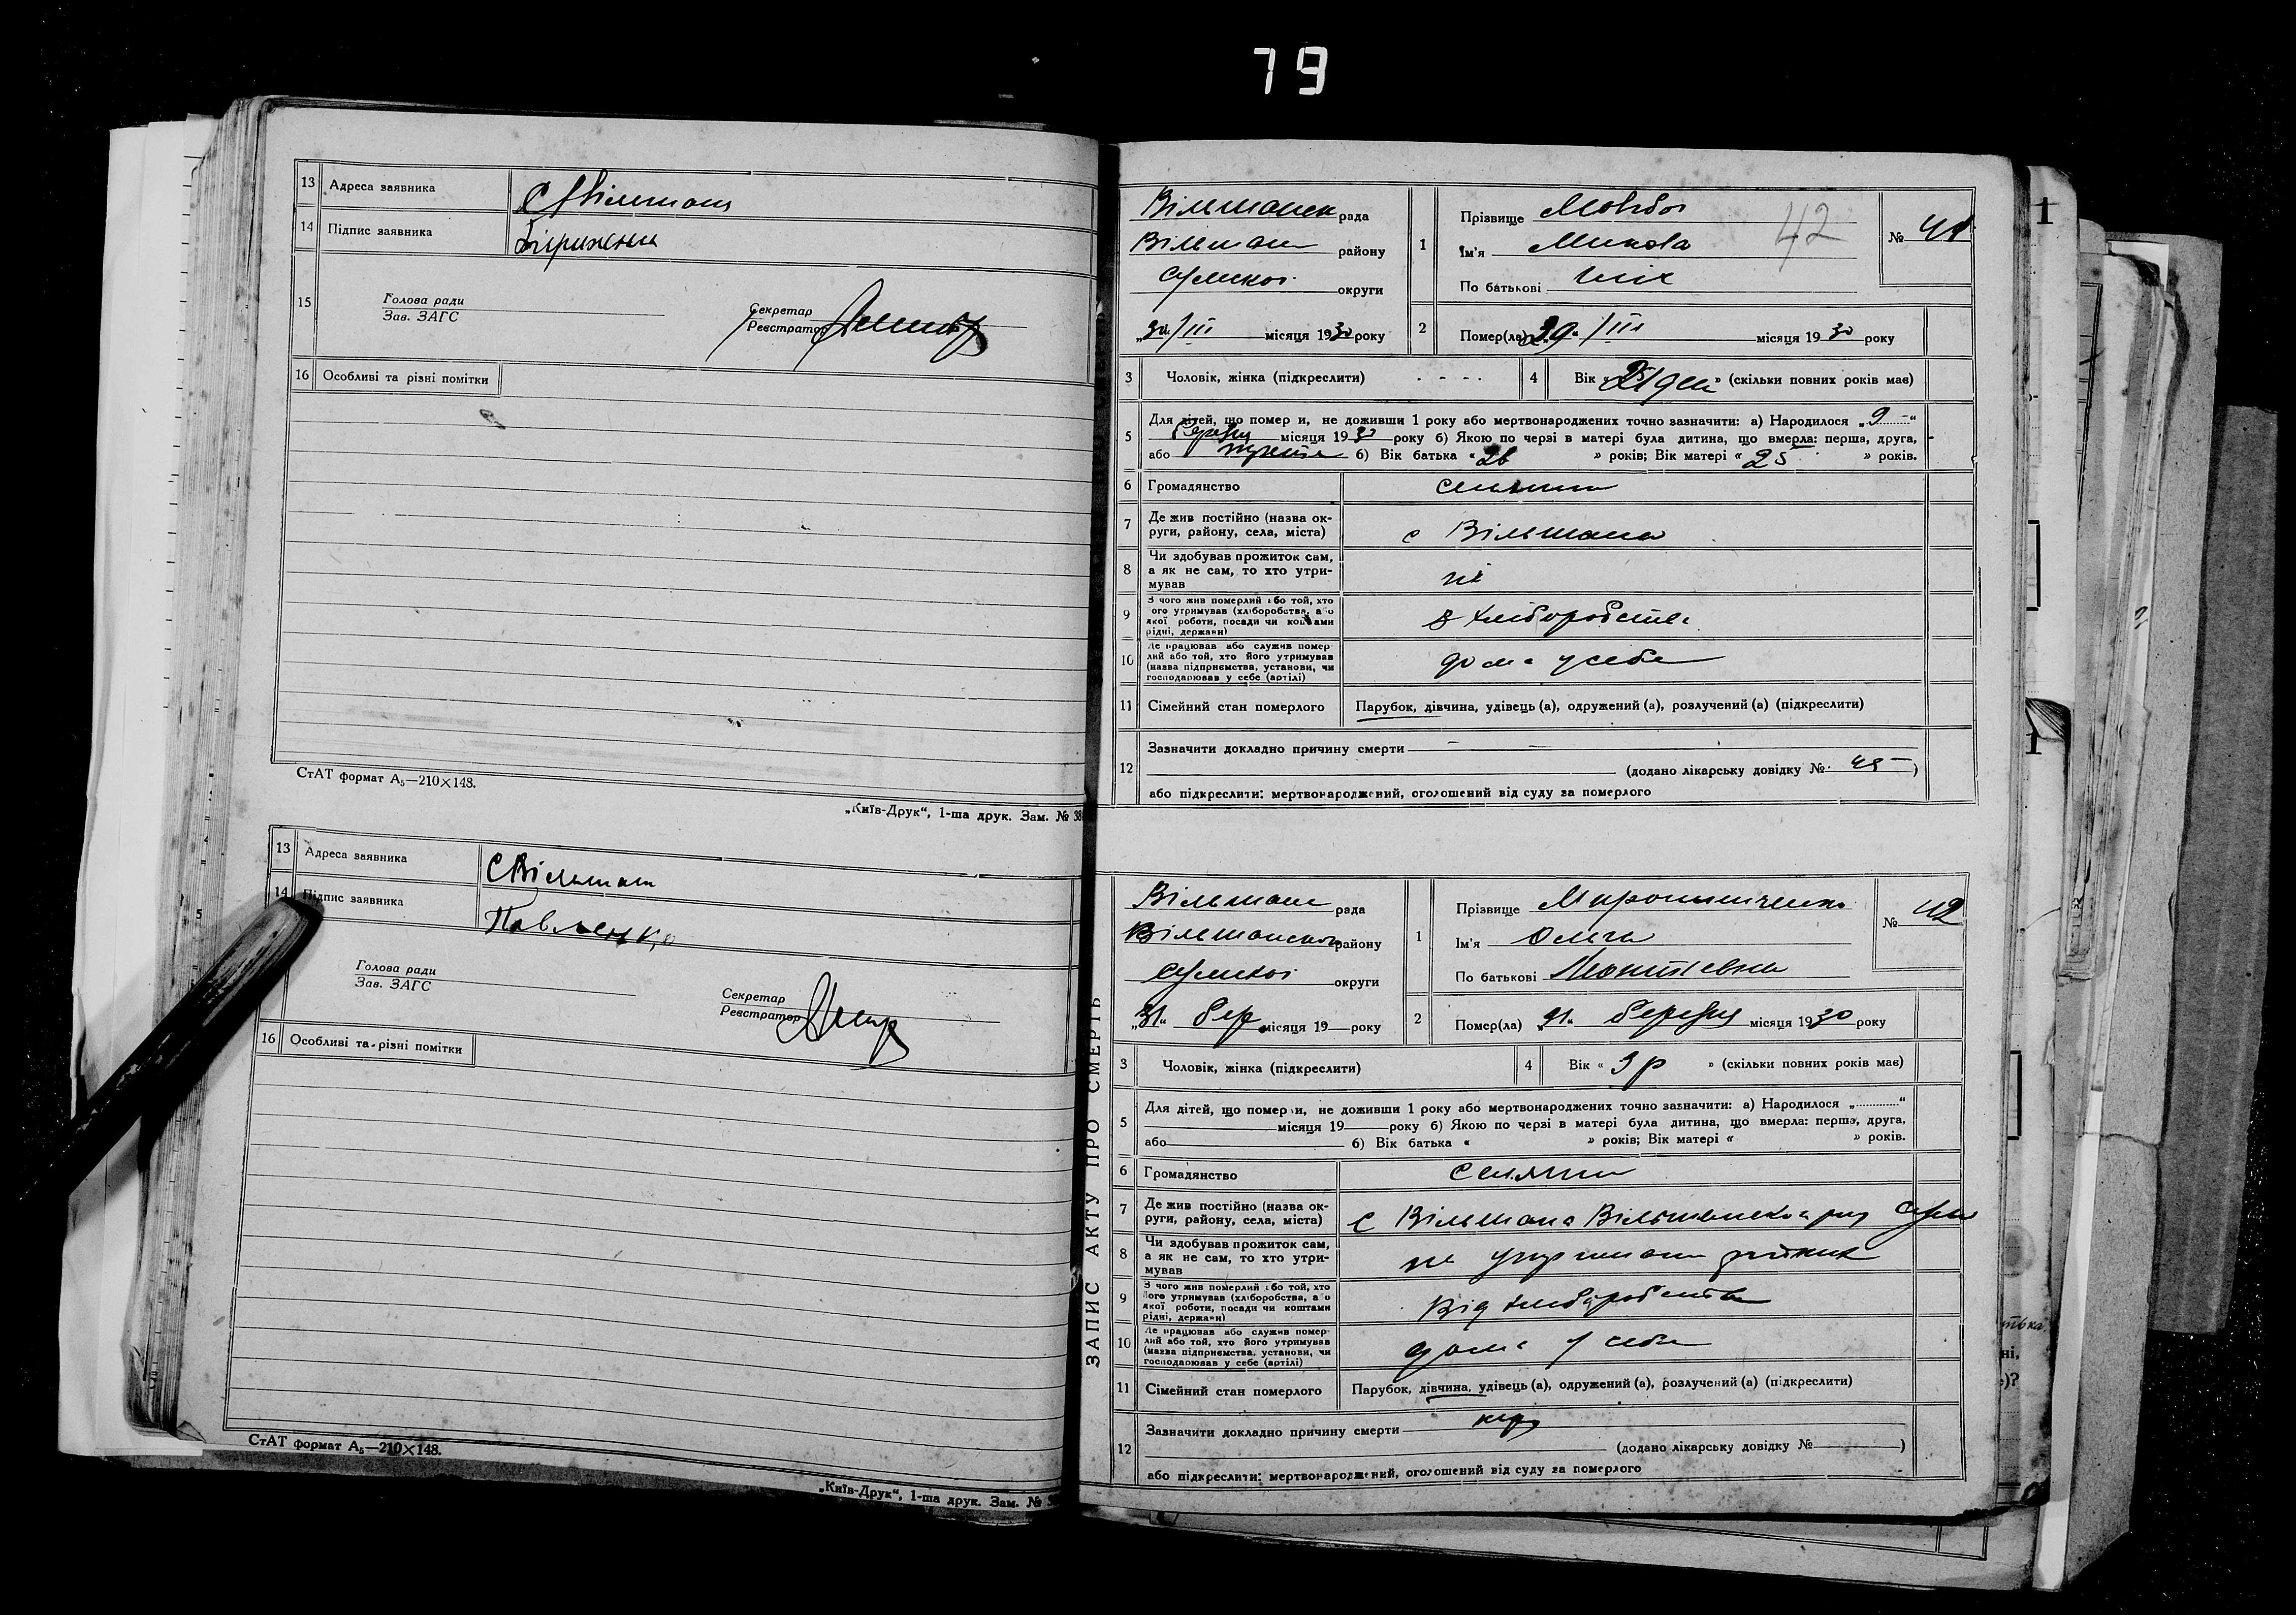 79
13 Адреса заявника
14 Підпис заявника
15 Голова ради
Зав. ЗАГС
Секретар
Реєстратор
16 Особливі та різні помітки
СтАТ формат А₅—210×148.
„Київ-Друк“, 1-ша друк. Зам. №
13 Адреса заявника С Вільшана
14 Підпис заявника Павленко
Голова ради
Зав. ЗАГС
Секретар
Реєстратор
16 Особливі та різні помітки
СтАТ формат А₅—210×148.
„Київ-Друк“, 1-ша друк. Зам. №
Вільшанск рада
Вільшан району
Сумскої округи
„30“ III місяця 1930 року
1 Прізвище
Ім'я Микола
По батькові
42
№ 41
2 Помер(ла) /III місяця 1930 року
3 Чоловік, жінка (підкреслити)
4 Вік « » (скільки повних років має)
5 Для дітей, що померли, не доживши 1 року або мертвонароджених точно зазначити: а) Народилося „9“
березня місяця 1930 року б) Якою по черзі в матері була дитина, що вмерла: перша, друга,
або третя б) Вік батька « 26 » років; Вік матері « 25 » років.
6 Громадянство
7 Де жив постійно (назва округи, району, села, міста) с Вільшана
8 Чи здобував прожиток сам, а як не сам, то хто утримував ні
9 З чого жив померлий або той, хто його утримував (хліборобства, або якої роботи, посади чи коштами рідні, держави) з хліборобства
10 Де працював або служив померлий або той, хто його утримував (назва підприємства, установи, чи господарював у себе (артілі) дома у себе
11 Сімейний стан померлого Парубок, дівчина, удівець (а), одружений (а), розлучений (а) (підкреслити)
12 Зазначити докладно причину смерти
(додано лікарську довідку № 45)
або підкреслити: мертвонароджений, оголошений від суду за померлого
ЗАПИС АКТУ ПРО СМЕРТЬ
Вільшан рада
Вільшанської району
Сумскої округи
„31“ бер місяця 19 року
1 Прізвище Мирошниченко
Ім'я Ольга
По батькові
№ 42
2 Помер(ла) березня місяця 1930 року
3 Чоловік, жінка (підкреслити)
4 Вік « 3 р » (скільки повних років має)
5 Для дітей, що померли, не доживши 1 року або мертвонароджених точно зазначити: а) Народилося „ “
місяця 19 року б) Якою по черзі в матері була дитина, що вмерла: перша, друга,
або б) Вік батька « » років; Вік матері « » років.
6 Громадянство селянин
7 Де жив постійно (назва округи, району, села, міста) с Вільшана
8 Чи здобував прожиток сам, а як не сам, то хто утримував
9 З чого жив померлий або той, хто його утримував (хліборобства, або якої роботи, посади чи коштами рідні, держави) від хліборобства
10 Де працював або служив померлий або той, хто його утримував (назва підприємства, установи, чи господарював у себе (артілі) дома у себе
11 Сімейний стан померлого Парубок, дівчина, удівець (а), одружений (а), розлучений (а) (підкреслити)
12 Зазначити докладно причину смерти
(додано лікарську довідку № )
або підкреслити: мертвонароджений, оголошений від суду за померлого